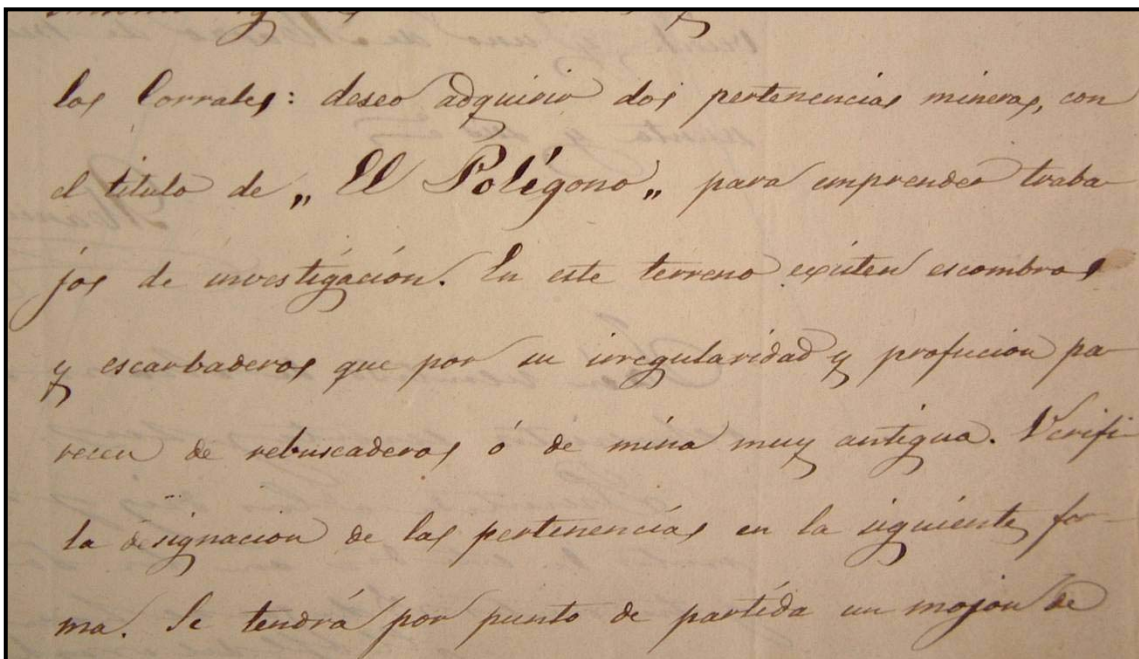 los Corrales: deseo adquirir dos pertenencias mineras, con
el titulo de „ El Polígono „ para emprender traba
jos de investigación. En este terreno existen escombros
y escarbaderos que por su irregularidad y profucion pa
recen de rebuscaderos ó de mina muy antigua. Verifi
la designacion de las pertenencias en la siguiente for-
ma. Se tendrá por punto de partida un mojon de